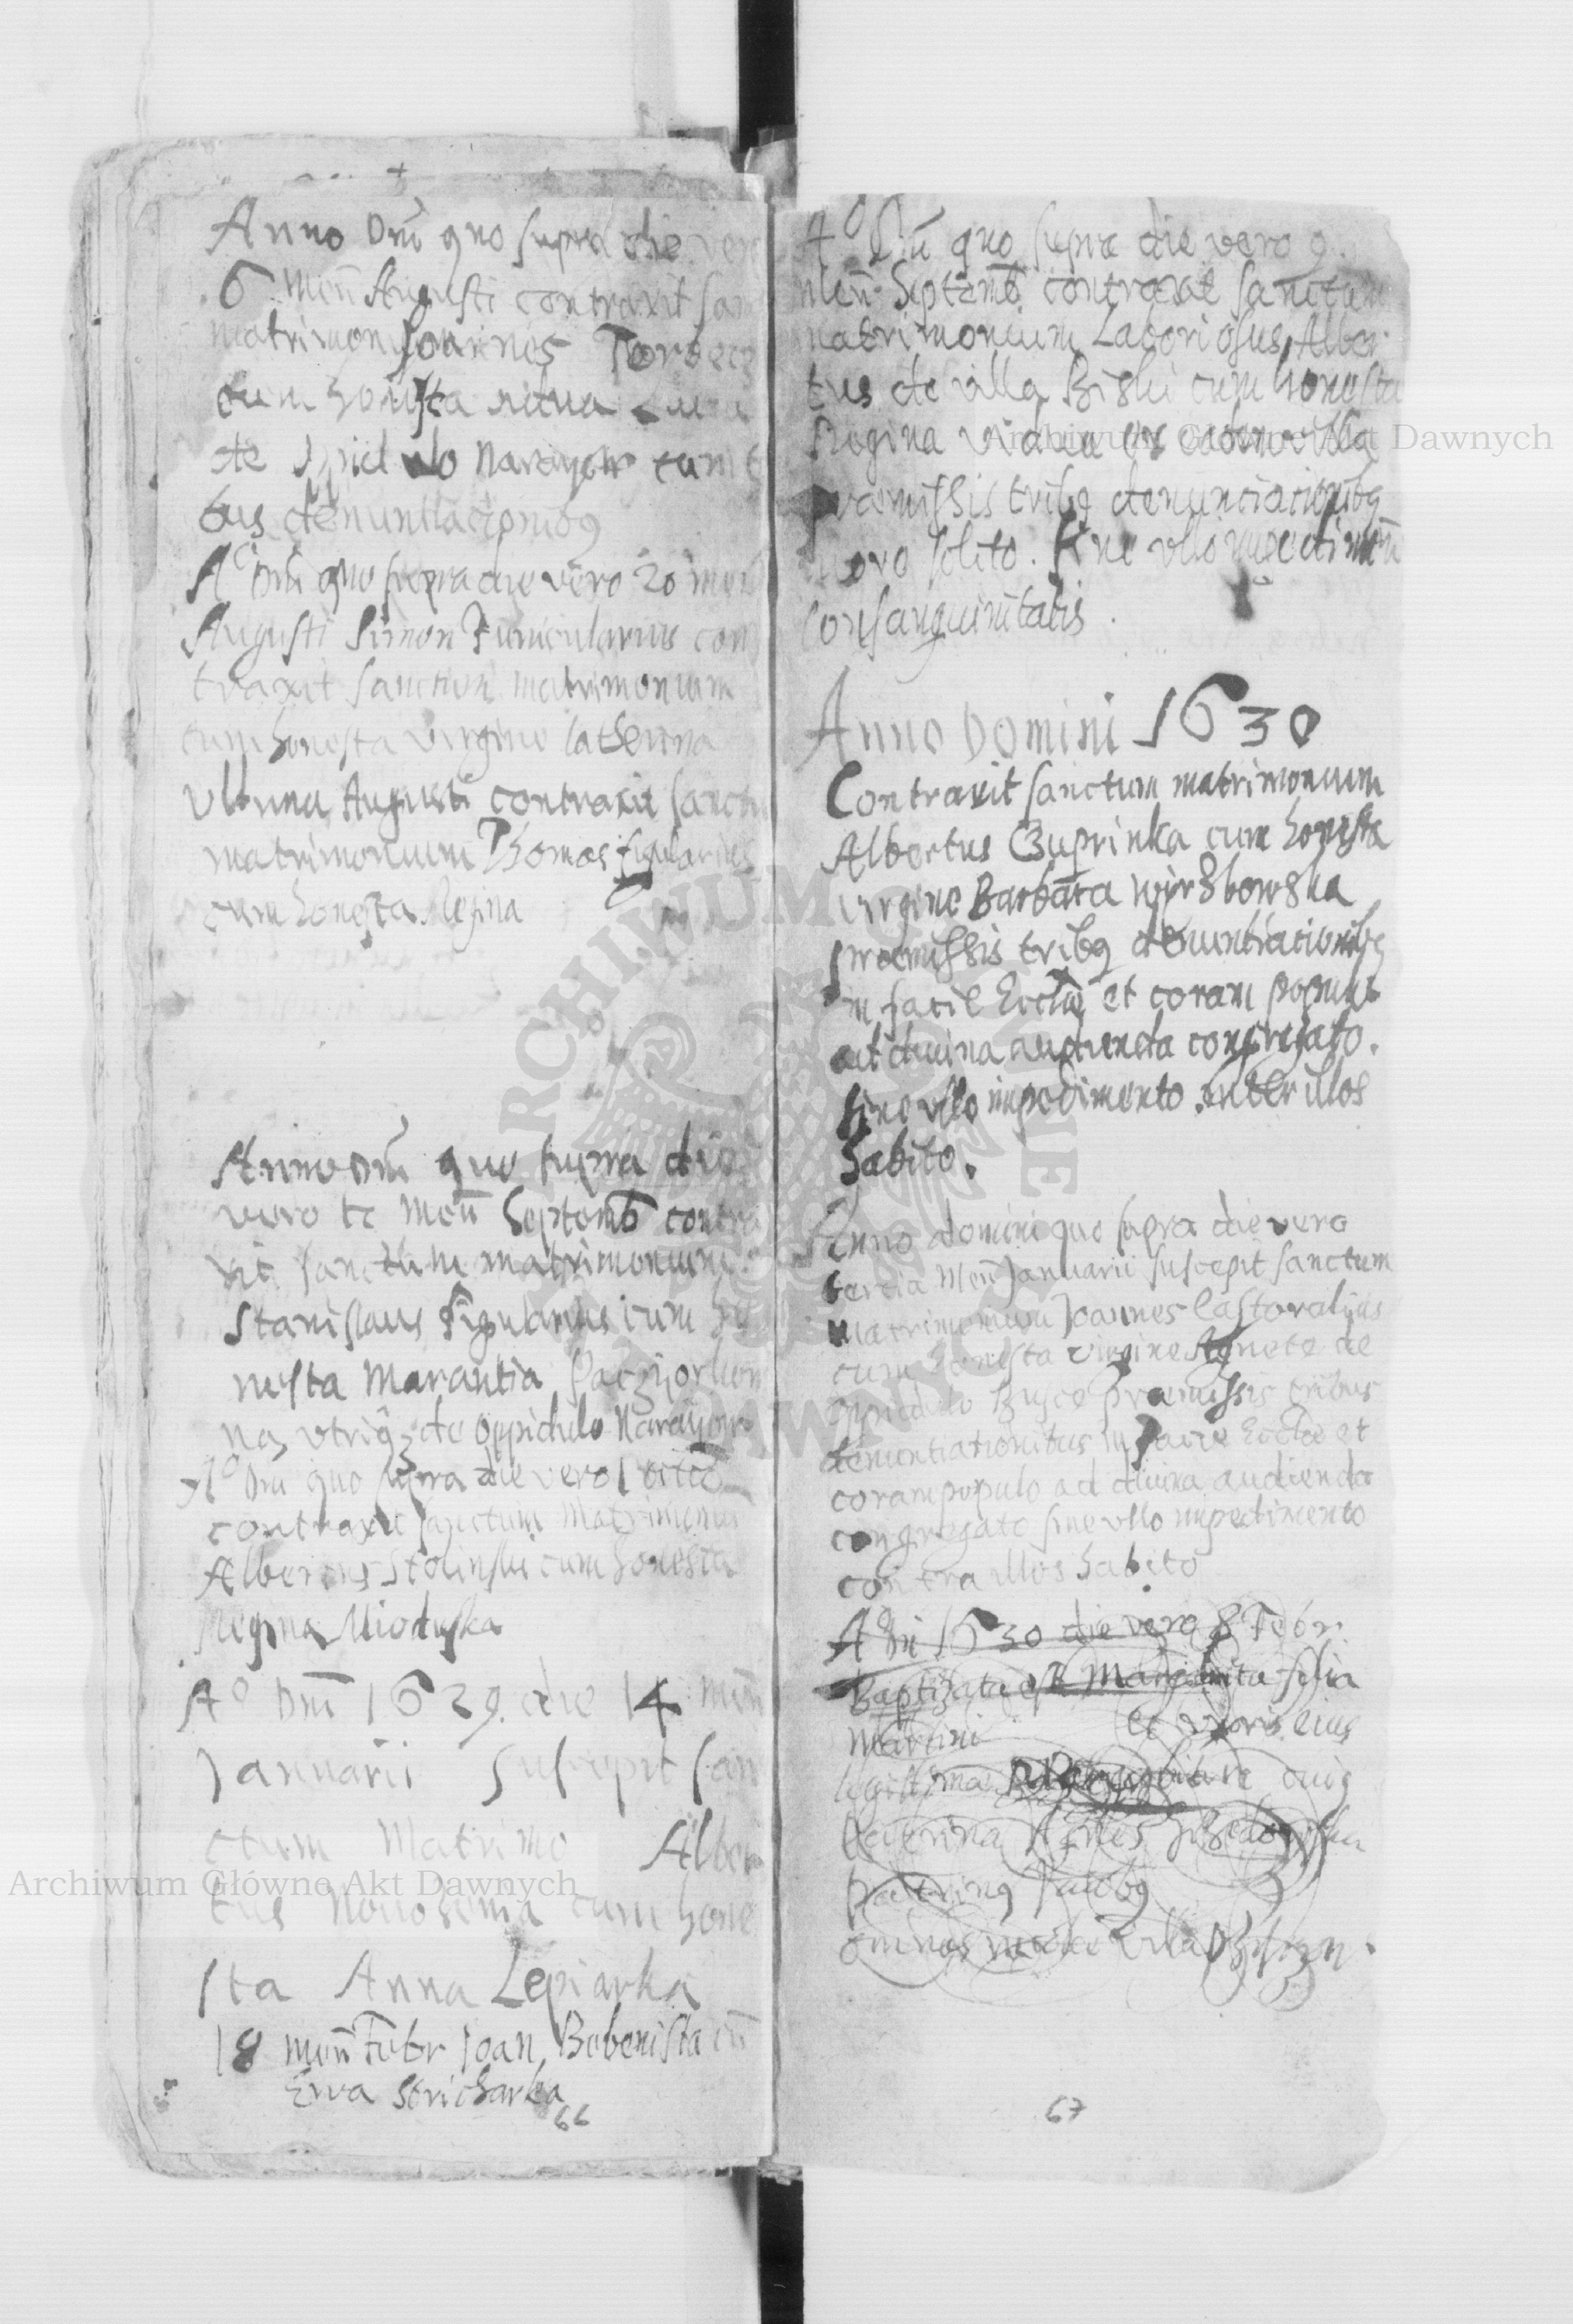 Anno Dni quo supra die vero
6 Men Augusti contraxit san
matrimon Joannes
cum honesta vidua
de Opidulo Narayow cum t
bus denuntiationibq
Ao Dni quo supra die vero 20 men
Augusti Simon Funicularius con
traxit sanctum matrimonium
cum honesta virgine Catherina
Ultima Augusti contraxit sanctu
matrimonium Thomas figularius
cum honesta Regina
Anno Dni quo supra die
vero te Men Septemb contra
xit sanctum matrimonium
Stanislaus Figularius cum ho
nesta Marantia
na utriq de Oppidulo Narayow
Ao Dni quo supra die vero 1 octob
contraxit sanctum Matrimoniu
Albertus Stolinski cum honesta
Regina Mioduska
Ao Dni 1629 die 14 men
Januarii Suscepit san
ctum Matrimo Alber
tus cum hone
sta Anna Lepiarka
18 men Febr Joan. Bebenista cu
Ewa Stricharka
66
Ao Dni quo supra die vero 9.
Men Septemb contraxit sanctum
matrimonium Laboriosus Alber
tus de villa Biski cum honesta
Regina vidua ex eadem villa
praemissis tribq denunciationibq
more solito. sine ullo impedimen
consanguinitatis.
Anno Domini 1630
Contraxit sanctum matrimonium
Albertus Czuprinka cum honesta
virgine Barbara Wyrzbowska
praemissis tribq denuntiationibq
in facie Eccliae et coram populo
ad divina audienda congregato.
sine ullo impedimento inter illos
habito.
Anno domini quo supra die vero
tertia Men Januarii suscepit sanctum
matrimonium Joannes Castoralius
cum honesta virgine Agnete de
Oppidulo praemissis tribus
denuntiationibus in facie Eccliae et
coram populo ad divina audienda
congregato sine ullo impedimento
contra illos habito
A Dni 1630 die vero 8 Febr.
Baptizata est Margarita filia
Martini et uxoris eius
legittimae cuiq
patrina Agnes
patrinq Jacobq
omnes villa
67
Archiwum Główne Akt Dawnych
Archiwum Główne Akt Dawnych
ARCHIWUM GŁÓWNE AKT DAWNYCH